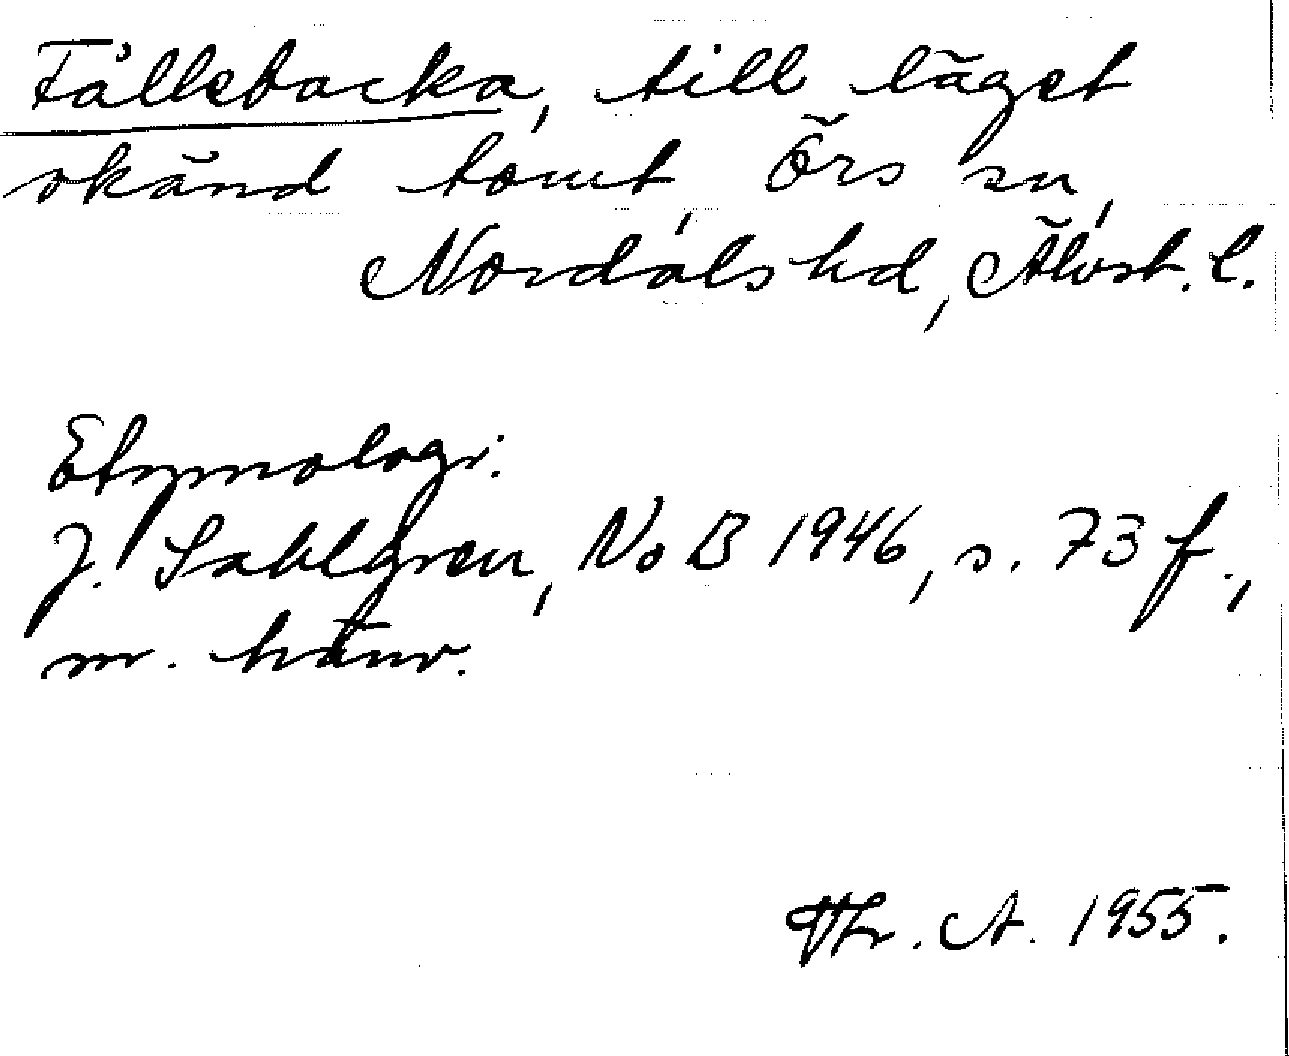 Fållebacka, till läget
okänd tomt, Örs sn,
Nordals hd, Älvsb. l.
Etymologi.
J. Sahlgren, NoB 1946, s. 73 f.,
m. hänv.
Thr. A. 1955.